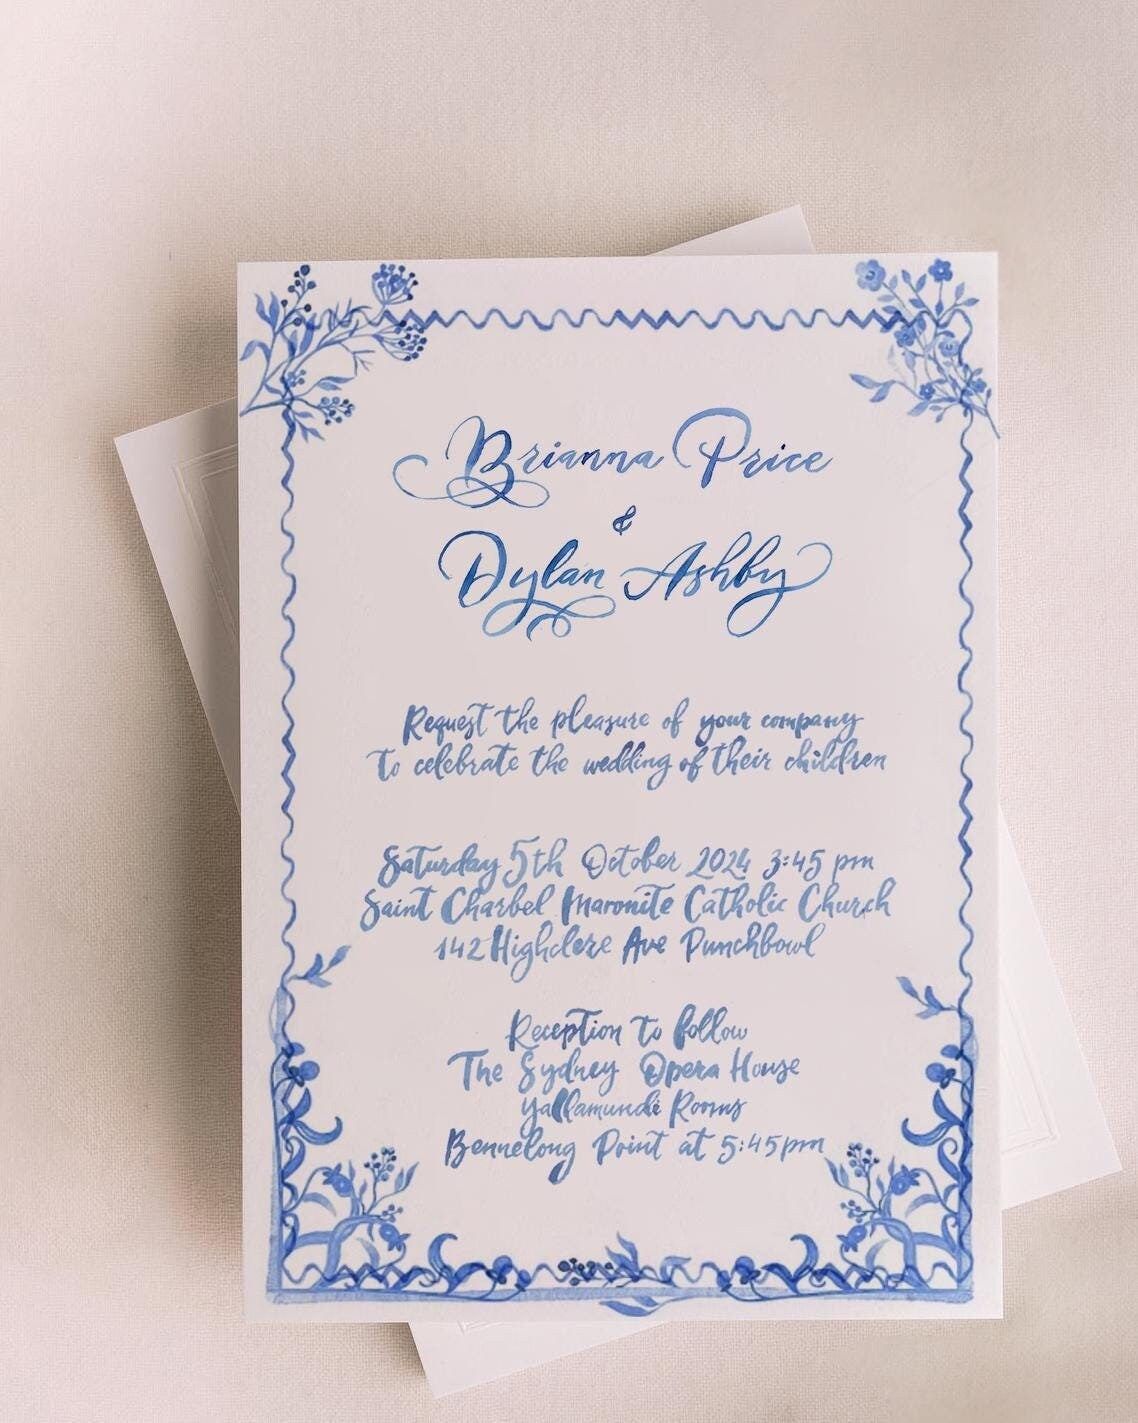 Brianna Price
&
Dylan Ashby
Request the pleasure of your company
to celebrate the wedding of their children
Saturday 5th October 2024 3:45 pm
Saint Charbel Maronite Catholic Church
142 Highclere Ave Punchbowl
Reception to follow
The Sydney Opera House
Yallamundi Rooms
Bennelong Point at 5:45pm